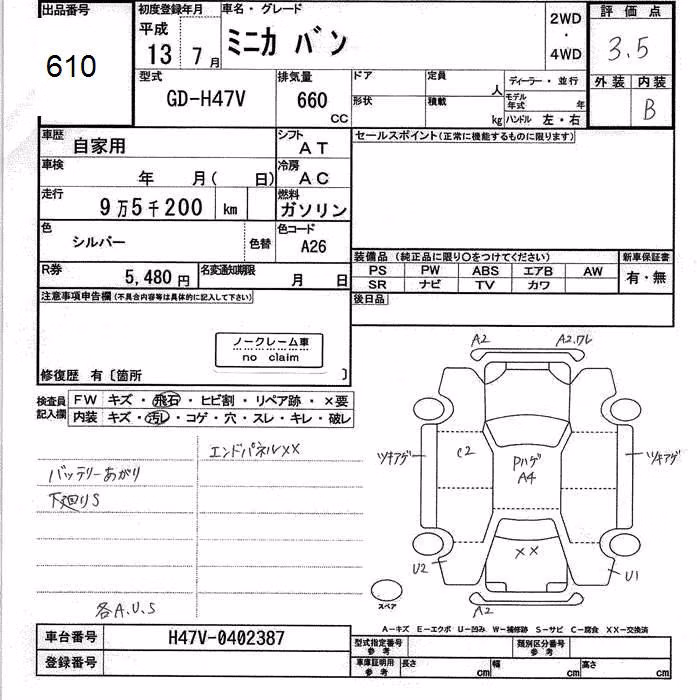 出品番号
610
初度登録年月
平成
13年7月
車名・グレード
ミニカ バン
2WD
・
4WD
評価点
3.5
外装 内装
B
型式
GD-H47V
排気量
660 CC
ドア
定員 人
ディーラー・並行
形状
積載 kg
モデル年式 年
ハンドル 左・右
車歴
自家用
シフト
AT
セールスポイント(正常に機能するものに限ります)
車検
年 月( 日)
冷房
AC
走行
9万5千200 km
燃料
ガソリン
色
シルバー
色替
色コード
A26
装備品 (純正品に限り○をつけてください)
新車保証書
PS PW ABS エアB AW
有・無
SR ナビ TV カワ
R券
5,480円
名変通知期限
月 日
後日品
注意事項申告欄(不具合内容等は具体的に記入して下さい)
ノークレーム車
no claim
修復歴 有〔箇所 〕
検査員記入欄
FW キズ・飛石・ヒビ割・リペア跡・×要
内装 キズ・汚レ・コゲ・穴・スレ・キレ・破レ
エンドパネルXX
バッテリーあがり
下廻りS
各A.U.S
A2
A2.ワレ
ツキアゲ
C2
Pハゲ
A4
ツキアゲ
XX
U2
U1
スペア
A2
A-キズ E-エクボ U-凹み W-補修跡 S-サビ C-腐食 XX-交換済
車台番号
H47V-0402387
型式指定番号
参考
類別区分番号
参考
登録番号
車庫証明用
参考
長さ cm
幅 cm
高さ cm